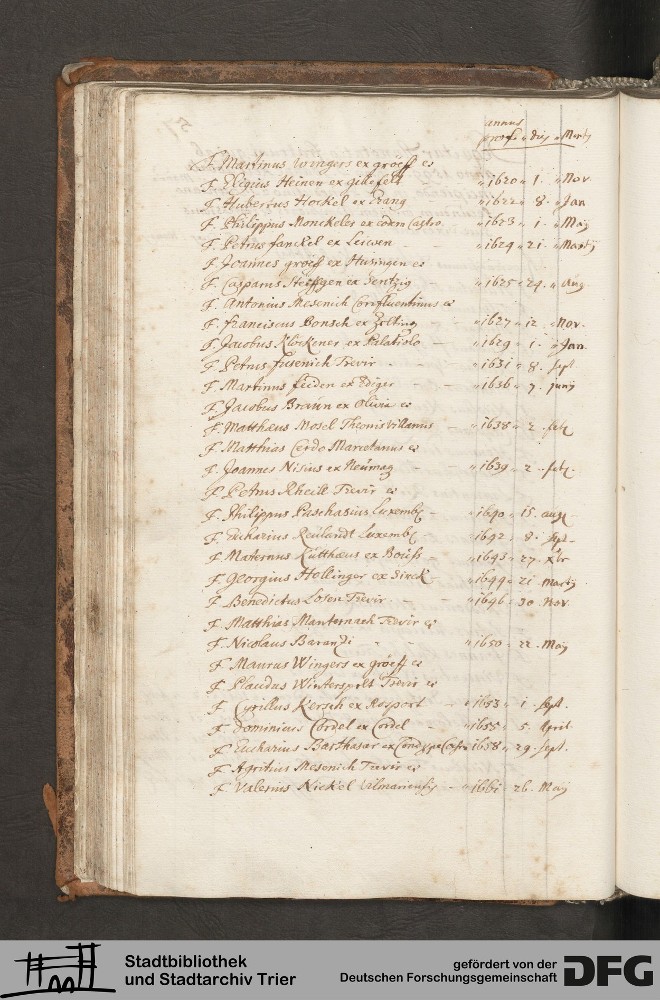 annus
prof. dies Mens
F. Martinus Wingers ex gröeff et
F. Eligius Heinen ex gillefelt 1620 1. Nov.
F. Hubertus Hockel ex Trang 1622 8. Jan
F. Philippus Monckeler ex eodem Castro 1623 1. Maÿ
F. Petrus fanckel ex Leiwen 1624 21 Martÿ
F. Joannes gröeff ex Husingen et
F. Casparus Heissgen ex Sentzig 1625 24. Aug.
F. Antonius Mesenich Confluentinus et
F. franciscus Bonsch ex Zelting 1627 12. Nov.
F. Jacobus Klöckener ex Palatiolo 1629 1. Jan
F. Petrus fusenich Trevir 1631 8. sept
F. Martinus feiden ex Ediger 1636 7. junÿ
F. Jacobus Braun ex Olivia et
F. Matthæus Mosel Theonisvillanus 1638 2.
F. Matthias Cerdo Marcetanus et
F. Joannes Nisius ex Neümag 1639 2.
F. Petrus Rheill Trevir et
F. Philippus Paschasius Luxemb. 1640 15. aug.
F. Eucharius Reulandt Luxemb. 1642 8. sept.
F. Maternus Lutthæus ex Bouss 1643 27. Xbr
F. Georgius Hollinger ex Sirck 1644 21 Martÿ
F. Benedictus Losen Trevir 1646 30 Nov.
F. Matthias Manternach Trevir et
F. Nicolaus Baranzi 1650 22. Maÿ
F. Maurus Wingers ex gröeff et
F. Placidus Winterspelt Trevir et
F. Cyrillus Kersch ex Rosport 1653 1 sept.
F. Dominicus Cordel ex Cordel 1655 5. April.
F. Eucharius Barthasar ex 1658 29. sept.
F. Agritius Mesenich Trevir et
F. Valerius Nickel Vilmariensis 1661 26. Maÿ
Stadtbibliothek
und Stadtarchiv Trier
gefördert von der
Deutschen Forschungsgemeinschaft
DFG